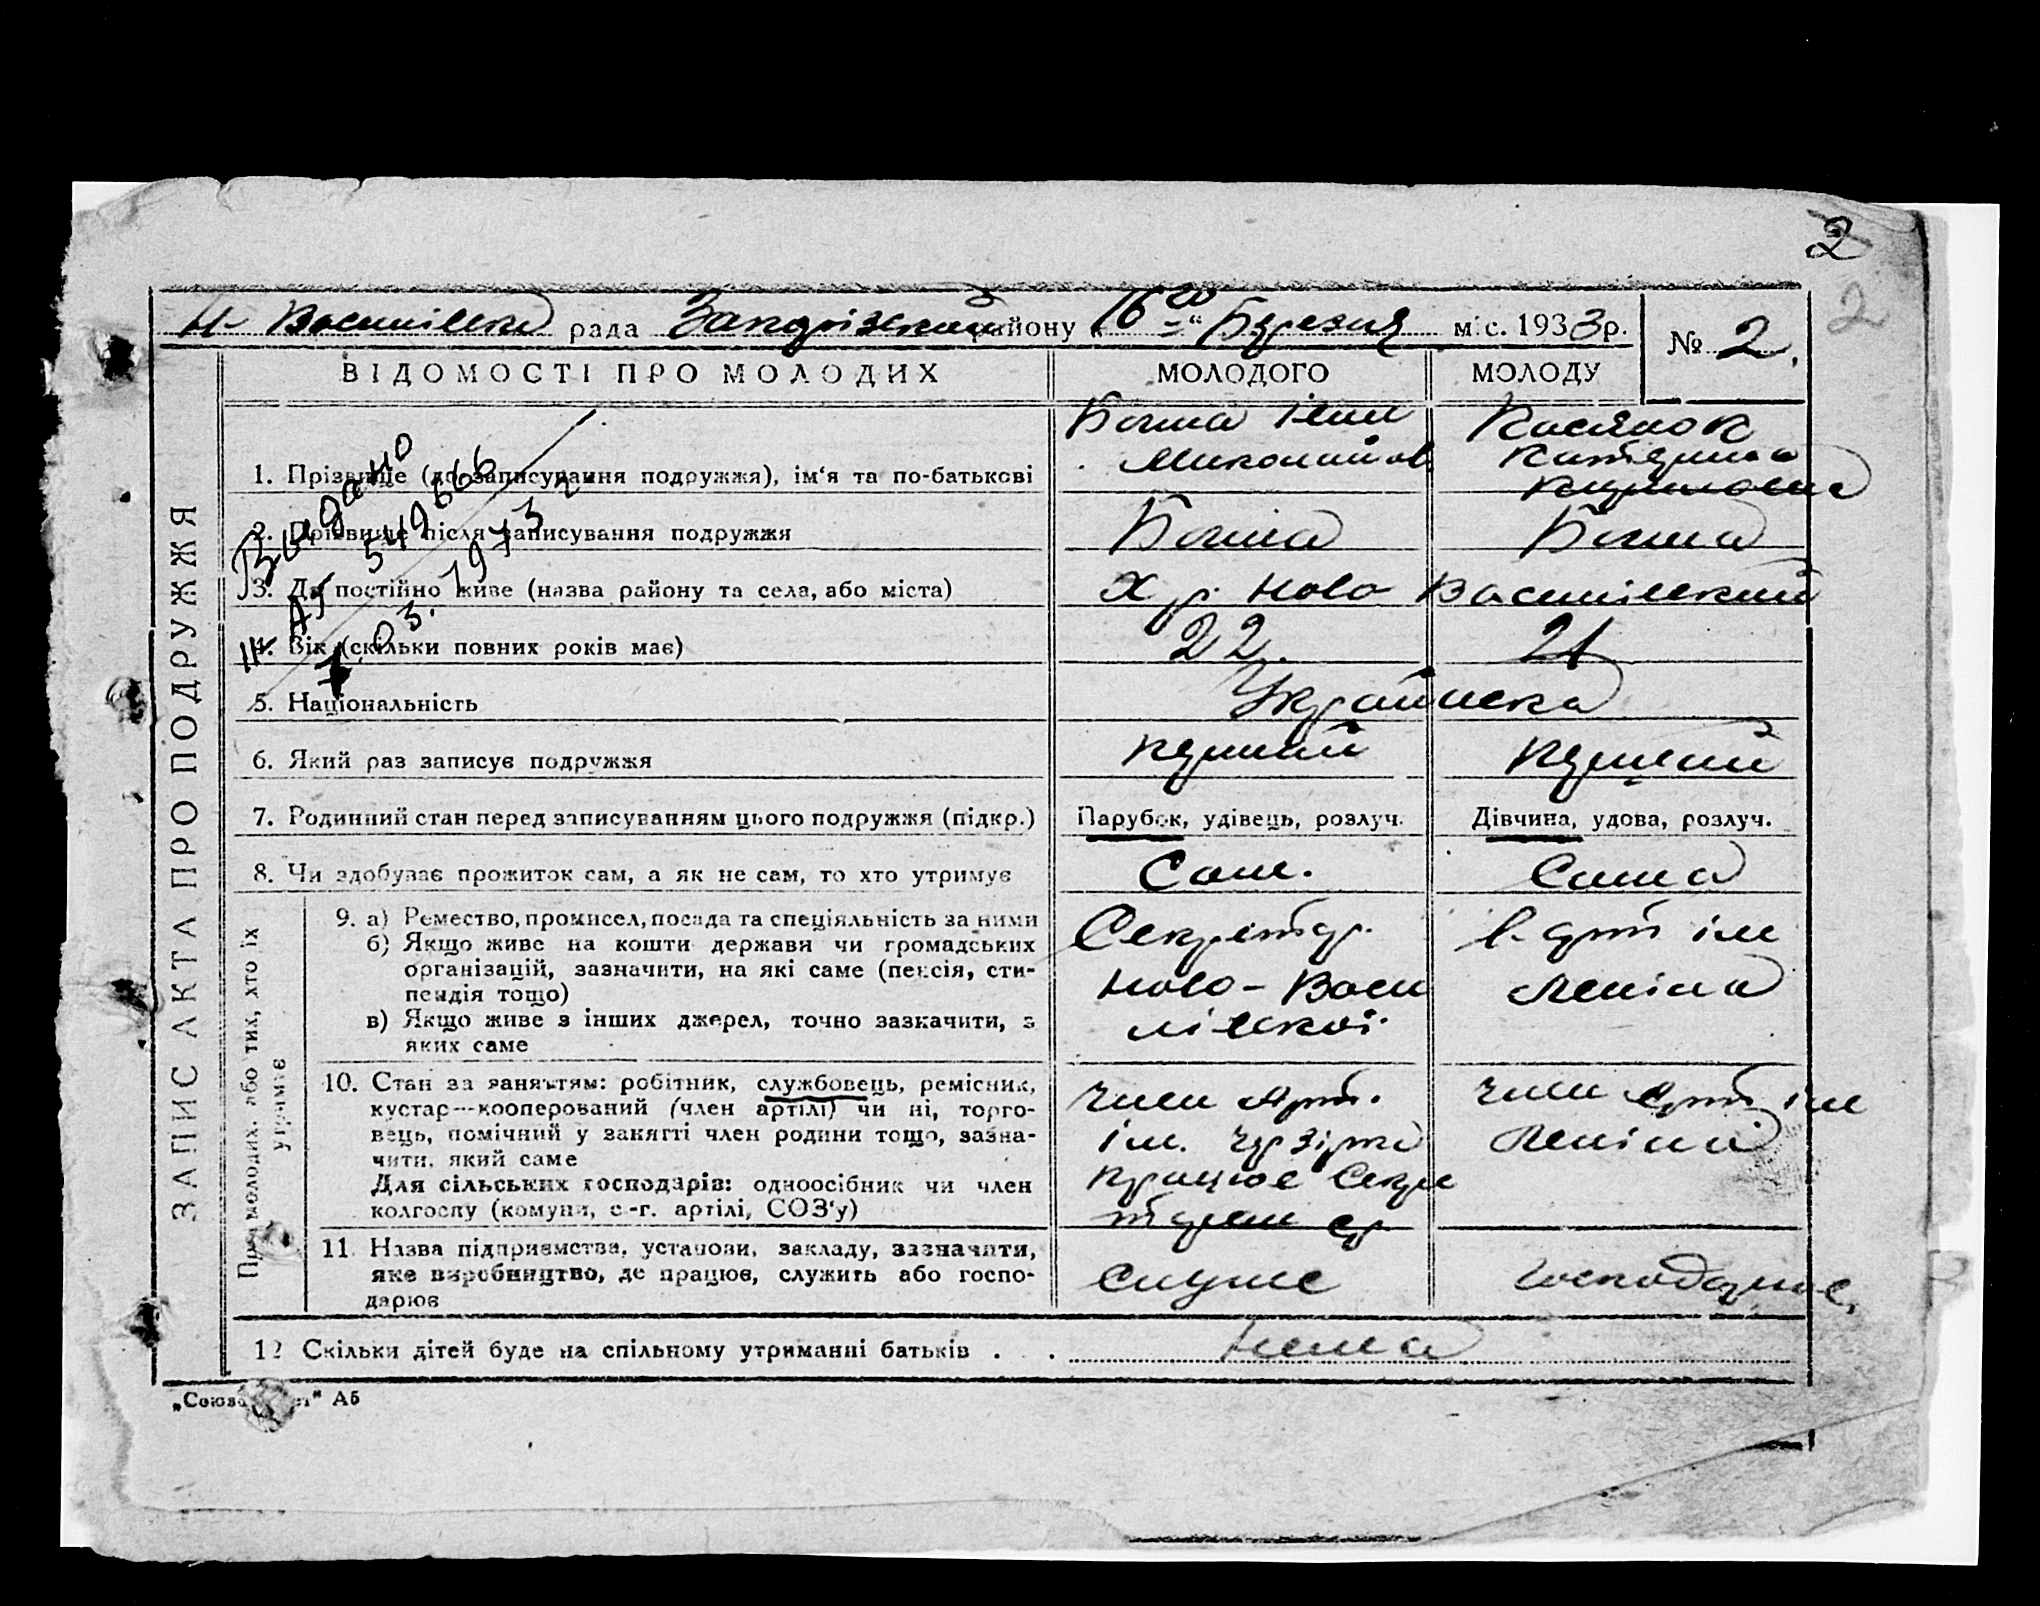 2
2
Н- Василівська рада Запорізький району „16го“ Березня міс. 1933р.
№ 2.
ВІДОМОСТІ ПРО МОЛОДИХ МОЛОДОГО МОЛОДУ
ЗАПИС АКТА ПРО ПОДРУЖЖЯ
1. Прізвище (до записування подружжя), ім‘я та по-батькові
Миколайов
Касянок
Катерина
Видано
549666
1973
2. Прізвище після записування подружжя
3. Де постійно живе (назва району та села, або міста) Х р. Ново Василівський
4. Вік (скільки повних років має) 22. 21
5. Національність Українська
6. Який раз записує подружжя перший перший
7. Родинний стан перед записуванням цього подружжя (підкр.) Парубок, удівець, розлуч. Дівчина, удова, розлуч.
8. Чи здобуває прожиток сам, а як не сам, то хто утримує Сам. Сама
Про молодих, або тих, хто їх утримує
9. а) Ремество, промисел, посада та спеціяльність за ними
б) Якщо живе на кошти держави чи громадських
організацій, зазначити, на які саме (пенсія, сти-
пендія тощо)
в) Якщо живе з інших джерел, точно зазначити, з
яких саме
Секретар.
Ново-Васи
лівської
в арт ім
Леніна
10. Стан за заняттям: робітник, службовець, ремісник,
кустар—кооперований (член артілі) чи ні, торго-
вець, помічний у занятті член родини тощо, зазна-
чити, який саме
Для сільських господарів: одноосібник чи член
колгоспу (комуни, с.-г. артілі, СОЗ‘у)
член арт.
ім.
працює Секре
тарем
член арт ім
Леніна
11. Назва підприємства, установи, закладу, зазначити,
яке виробництво, де працює, служить або госпо-
дарює
служе господарює,
12 Скільки дітей буде на спільному утриманні батьків . . Нема
А5